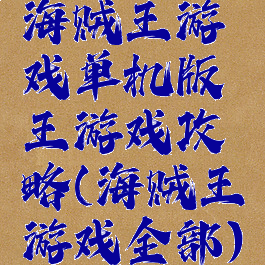 海贼王游
戏单机版
王游戏攻
略(海贼王
游戏全部)